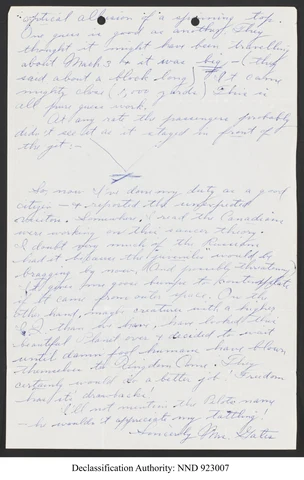 optical allusion of a spinning top.
One guess is good as another. They
thought it might have been travelling
about Mach 3 to it was big - (they
said about a block long) It came
mighty close (1,000 yards) This is
all pure guess work.
At any rate the passengers probably
didn't see it as it stayed in front of
the jet :-
So, now I've done my duty as a good
citizen - & reported the unexpected
Somehow, I read the Canadians
were working on this saucer theory.
I doubt very much if the Russians
had it because the would be
bragging by now, (and possibly threatening)
It gives me goose bumps to
if it came from outer space. On the
other hand, maybe creatures with a higher
I.Q. than we have, have looked this
beautiful Planet over & decided to wait
until damn fool humans have blown
themselves to Kingdom Come. They
certainly would do a better job! Freedom
has its drawbacks.
I'll not mention the Pilots name
- he wouldn't appreciate my tattling!
Sincerely Mrs. Gates
Declassification Authority: NND 923007